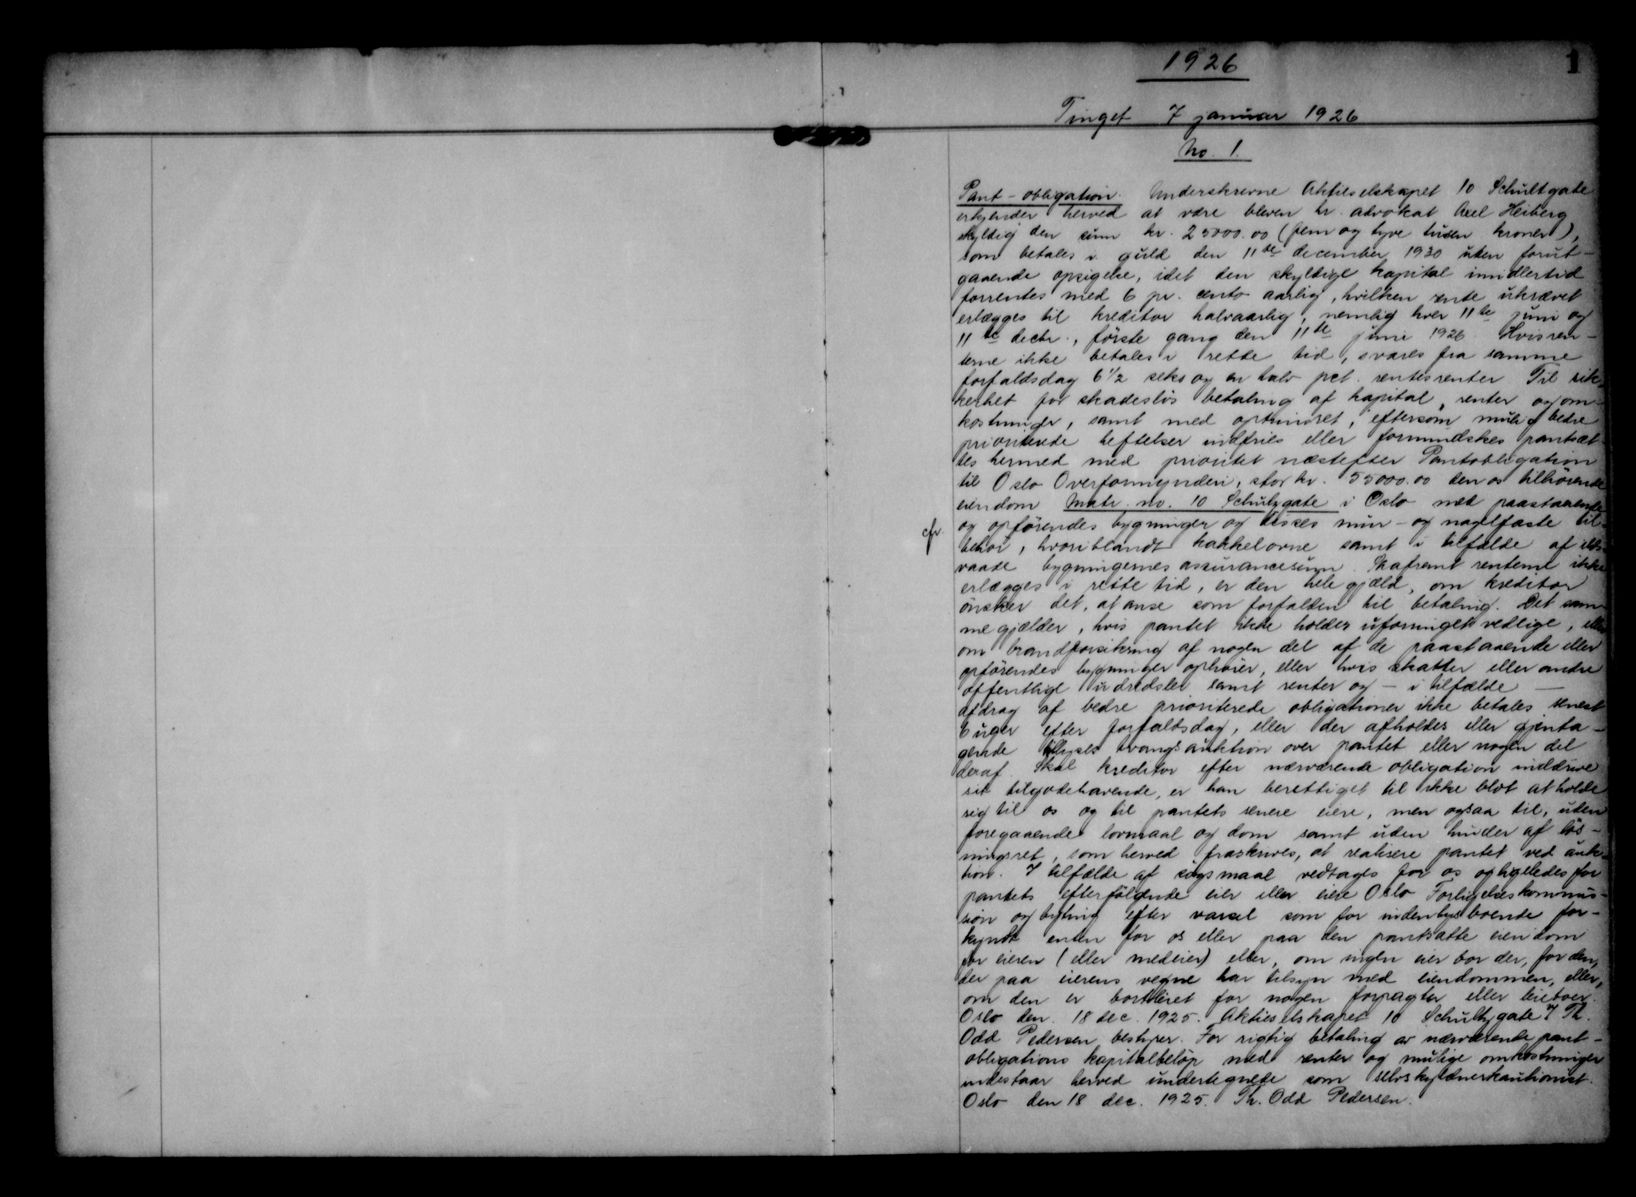 1926
1
Tinget 7 januar 1926
No. 1.
Pant-obligation. Underskrevne Aktieselskapet 10 Schultzgate
erkjender herved at være bleven hr. advokat Axel Heiberg
skyldig den sum kr. 25000.00 (fem og tyve tusen kroner),
som betales i guld den 11te december 1930 uten forut-
gaaende opsigelse, idet den skyldige kapital imidlertid
forrentes med 6 pr. cento aarlig, hvilken rente ukrævet
erlægges til kreditor halvaarlig, nemlig hver 11te juni og
11te decbr., første gang den 11te juni 1926. Hvis ren-
terne ikke betales i rette tid, svares fra samme
forfaldsdag 6 1/2 seks og en halv pct. rentesrenter. Til sik-
kerhet for skadesløs betaling af kapital, renter og om-
kostninger, samt med oprinret, eftersom mulig bedre
prioriterede heftelser indfries eller formindskes pantsæt-
tes hermed med prioritet næstefter Pantobligation
til Oslo Overformynderi, stor kr. 55000.00 den os tilhørende
eiendom Matr. no. 10 Schultzgate i Oslo med paastaaende
og opførendes bygninger og disses mur- og nagelfaste til-
cfr behør, hvoriblandt kakkelovne samt i tilfælde af ilds-
vaade bygningernes assurancesum. Saafremt renterne ikke
erlægges i rette tid, er den hele gjæld, om kreditor
ønsker det, at anse som forfalden til betaling. Det sam-
me gjælder, hvis pantet ikke holdes uforringet vedlige, eller
om brandforsikring af nogen del af de paastaaende eller
opførendes bygninger ophører, eller hvis skatter eller andre
offentlige udredsler samt renter og - i tilfælde -
afdrag af bedre prioriterede obligationer ikke betales senest
6 uger efter forfaldsdag, eller der afholdes eller gjenta-
gende lyses tvangsauktion over pantet eller nogen del
deraf. Skal kreditor efter nærværende obligation inddrive
sit tilgodehavende, er han berettiget til ikke blot at holde
sig til os og til pantets senere eiere, men ogsaa til, uden
foregaaende lovmaal og dom samt uden hinder af løs-
ningsret, som herved fraskrives, at realisere pantet ved auk-
tion. I tilfælde af søgsmaal vedtages for os og ligeledes for
pantets efterfølgende eier eller eiere Oslo Forligelseskommis-
sion og byting efter varsel som for indenbys boende for-
kyndt enten for os eller paa den pantsatte eiendom
for eieren (eller medeier) eller, om ingen eier bor der, for den,
der paa eierens vegne har tilsyn med eiendommen, eller,
om den er bortleiet for nogen forpagter eller leieboer.
Oslo den 18 dec. 1925. Aktieselskapet 10 Schultzgate 7 Th.
Odd Pedersen, bestyrer. For rigtig betaling av nærværende pant-
obligations kapitalbeløp med renter og mulige omkostninger
indestaar herved undertegnede som selvskyldnerkautionist.
Oslo den 18 dec. 1925. Th. Odd Pedersen.